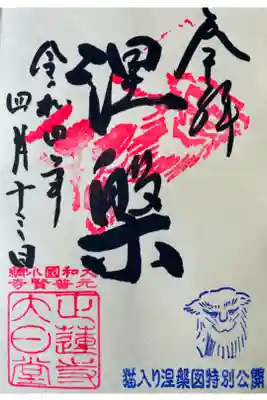 奉拝
涅槃
令和四年
四月十三日
大和國小綱
元普賢寺
正蓮寺
大日堂
猫入り涅槃図特別公開